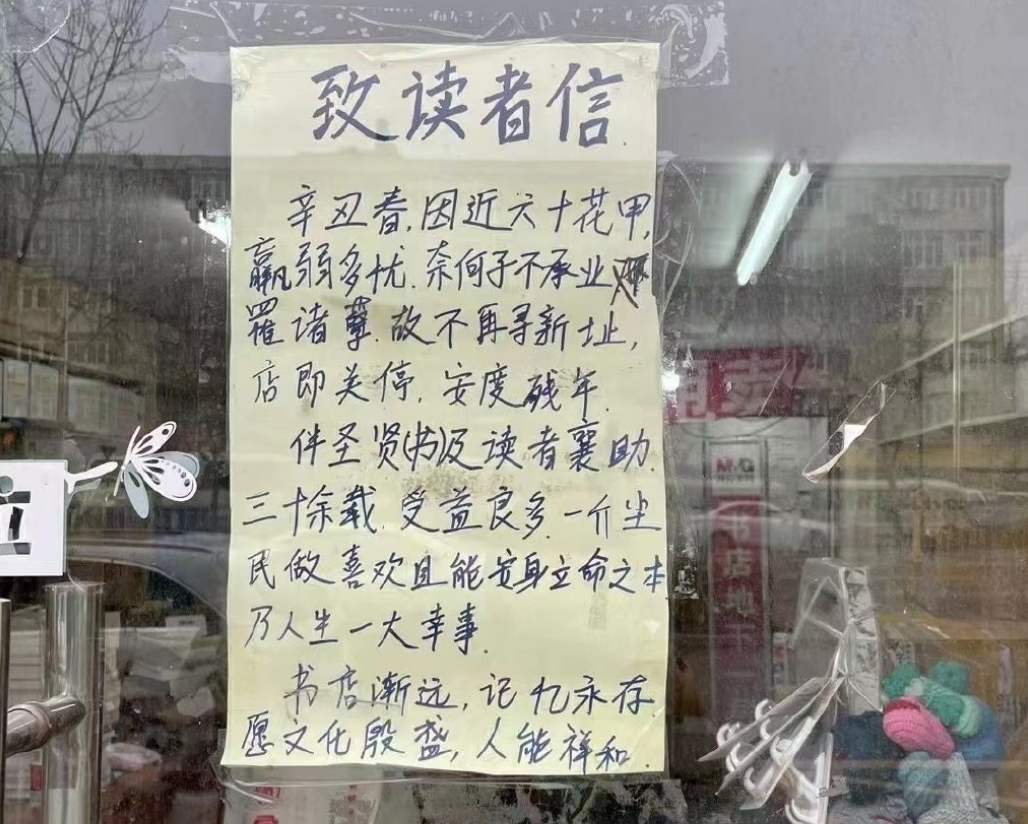 致读者信.
辛丑春,因近六十花甲,
羸弱多忧.奈何子不承业
罹诸孽.故不再寻新址,
店即关停,安度残年.
伴圣贤(书)及读者襄助.
三十余载.受益良多.一介尘
民做喜欢且能安身立命之本
乃人生一大幸事.
书店渐远,记忆永存.
愿文化殷盛,人能祥和.
M&G
书店地下